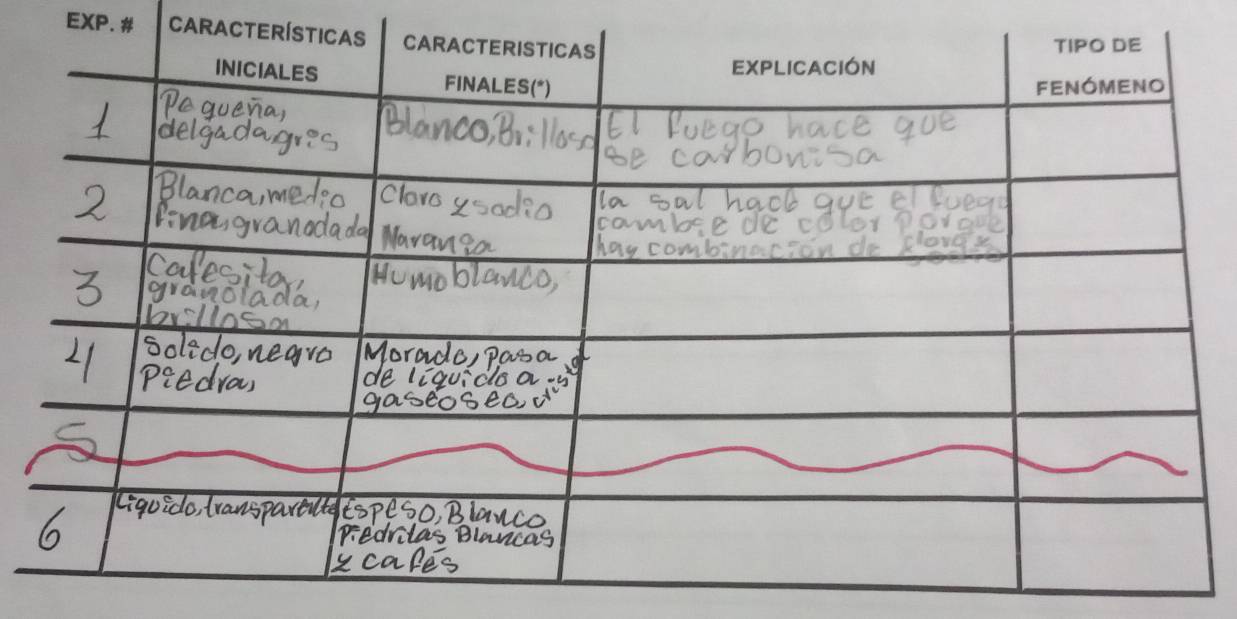 EXP. # CARACTERÍSTICAS INICIALES CARACTERISTICAS FINALES(*) EXPLICACIÓN TIPO DE FENÓMENO
1
Pequeña,
delgadagris
Blanco,Brilloso
El fuego hace que
se carbonisa
2
Blanca,medio
fina,granodada
Cloro y sodio
Naranja
la sal hace que el fuego
cambie de color porque
hay combinación de cloro y
sodio
3
Cafesita,
granolada,
brillosa
Humo blanco,
4
Solido, negro
Piedra,
Morado, pasa
de liquido a
gaseoseo, cristal
5
6
Liquido, transparente
Espeso, Blanco
Piedritas Blancas
y cafés